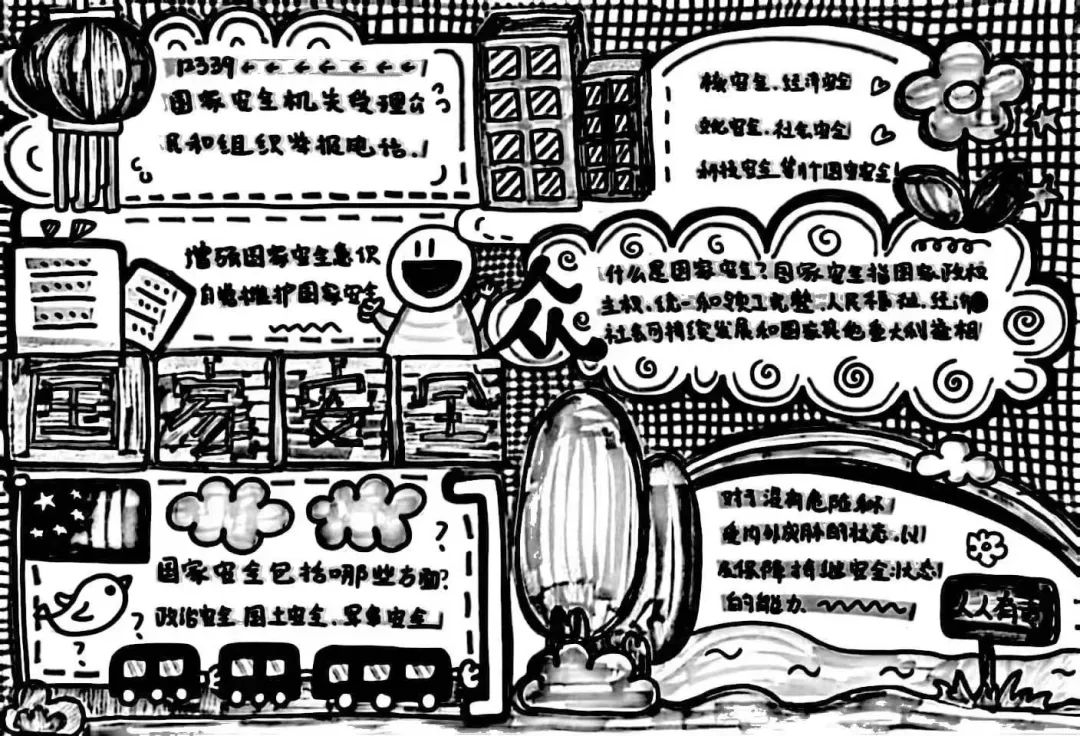 12339
国家安全机关受理公
民和组织举报电话
核安全、经济安全
文化安全、社会安全
科技安全等11个国家安全
增强国家安全意识
自觉维护国家安全
人人
什么是国家安全?国家安全指国家政权
主权、统一和领土完整、人民福祉、经济
社会可持续发展和国家其他重大利益相
国家安全
对于没有危险和不
受内外威胁的状态、以
及保障持续安全状态
的能力
国家安全包括哪些方面?
政治安全、国土安全、军事安全
人人有